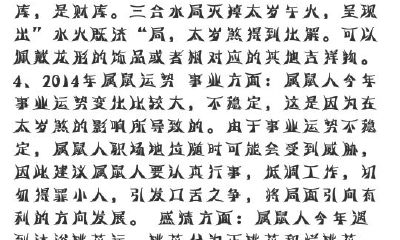 库，是财库。三合水局灭掉太岁午火，呈现
出”水火既济“局，太岁煞得到化解。可以
佩戴龙形的饰品或者相对应的其他吉祥物。
4、2014年属鼠运势 事业方面：属鼠人今年
事业运势变化比较大，不稳定，这是因为在
太岁煞的影响所导致的。由于事业运势不稳
定，属鼠人职场地位随时可能会受到威胁，
因此建议属鼠人要认真行事，低调工作，切
勿得罪小人，引发口舌之争，将局面引向有
利的方向发展。 感情方面：属鼠人今年遇